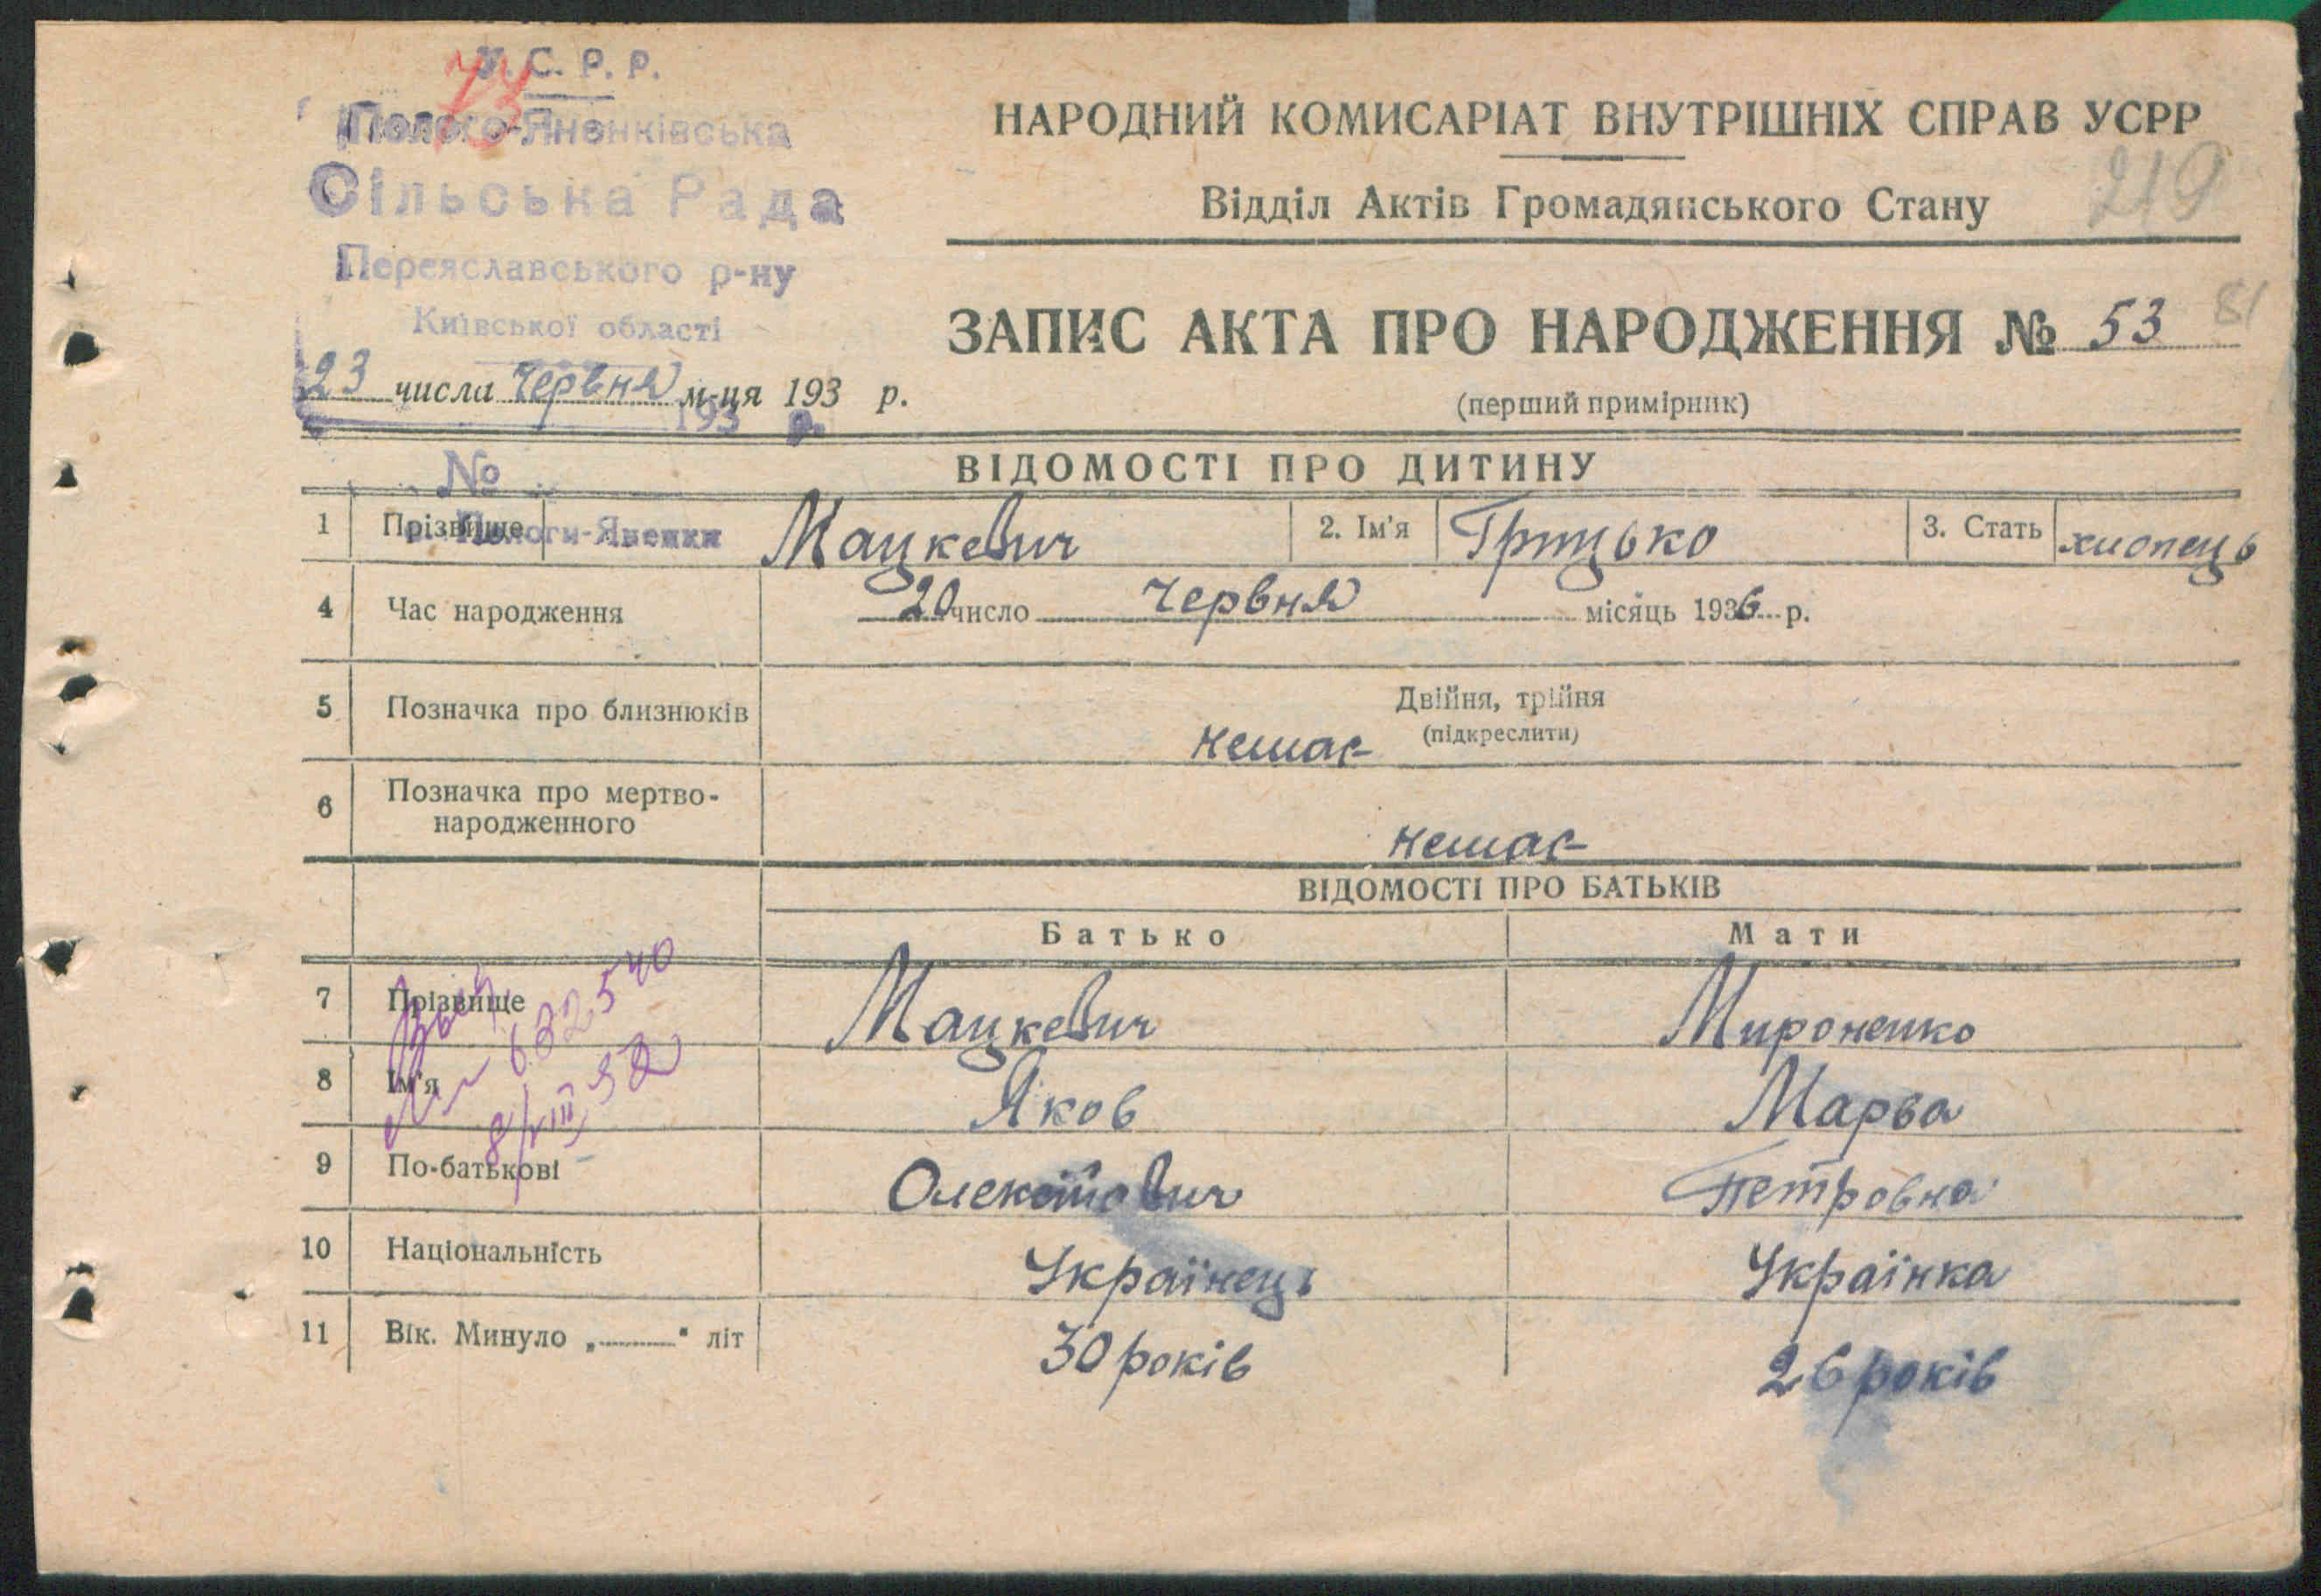 У.С.Р.Р.
73
Полого-Яненківська
Сільська Рада
Переяславського р-ну
Київської області
23 числа червня м-ця 193 р.
193 р.
№
с. Пологи-Яненки
НАРОДНИЙ КОМИСАРІАТ ВНУТРІШНІХ СПРАВ УСРР
219
Відділ Актів Громадянського Стану
ЗАПИС АКТА ПРО НАРОДЖЕННЯ № 53
81
(перший примірник)
ВІДОМОСТІ ПРО ДИТИНУ
1 Прізвище Мацкевич 2. Ім'я Грицько 3. Стать хлопець
4 Час народження 20 число червня місяць 1936 р.
5 Позначка про близнюків Двійня, трійня
(підкреслити)
немає
6 Позначка про мертво-
народженного
немає
ВІДОМОСТІ ПРО БАТЬКІВ
Батько Мати
7 Прізвище Мацкевич Мироненко
8 Ім'я Яков Марва
9 По-батькові Петровна
10 Національність Українець Українка
11 Вік. Минуло „ “ літ 30 років 26 років
632540
8/VIII 52